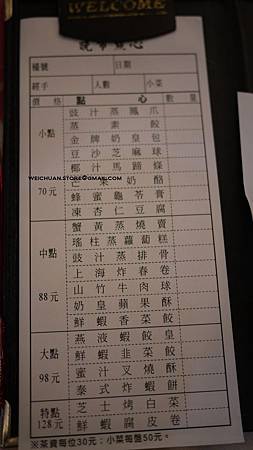 WELCOME
晚市點心
檯號 日期
經手 人數 小菜
價格 點心 數量
小點
70元
豉汁蒸鳳爪
蒸素餃
金牌奶皇包
豆沙芝麻球
椰汁馬蹄條
芒果奶酪
蜂蜜龜苓膏
凍杏仁豆腐
WEICHUAN.STORE@GMAIL.COM
中點
88元
蟹黃蒸燒賣
瑤柱蒸蘿蔔糕
豉汁蒸排骨
上海炸春卷
山竹牛肉球
奶皇蘋果酥
鮮蝦香菜餃
大點
98元
燕液蝦餃皇
鮮蝦韭菜餃
蜜汁叉燒酥
泰式炸蝦餅
特點
128元
芝士烤白菜
鮮蝦腐皮卷
※茶資每位30元；小菜每盤50元。